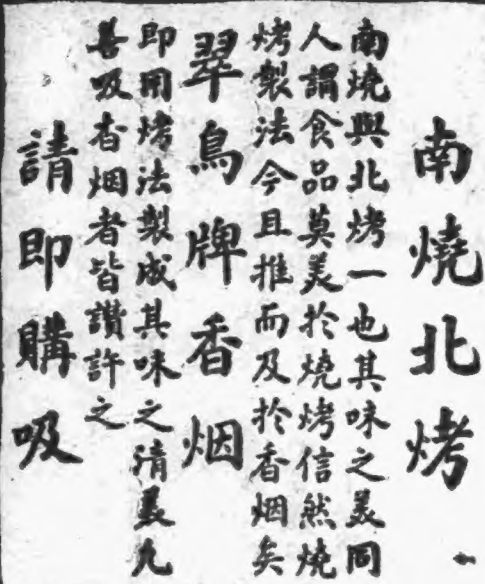 南燒北烤
南燒與北烤一也其味之美同
人謂食品莫美於燒烤信然燒
烤製法今且推而及於香烟矣
翠鳥牌香烟
即用烤法製成其味之清美凡
善吸香烟者皆讚許之
請即購吸